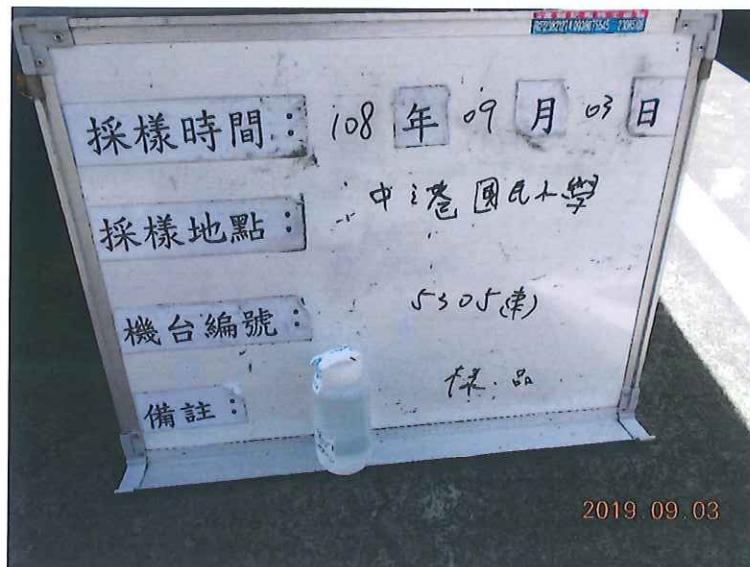 採樣時間： 108 年 09 月 03 日
採樣地點： 中港國民小學
機台編號： 5305(東)
備註： 樣品
2019.09.03